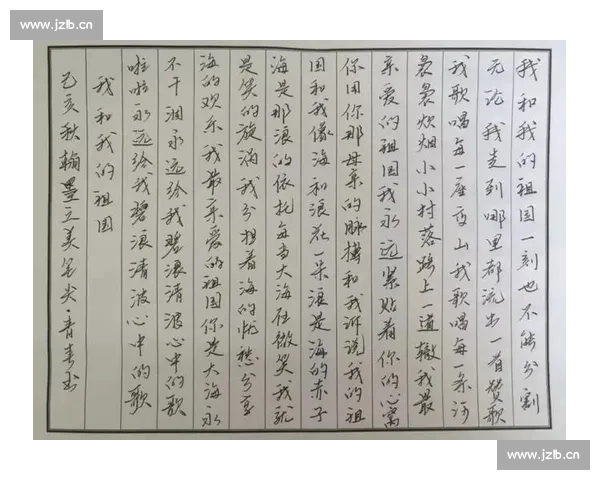 www.jzlb.cn
www.jzlb.cn
我和我的祖国一刻也不能分割
无论我走到哪里都流出一首赞歌
我歌唱每一座高山我歌唱每一条河
袅袅炊烟小小村落路上一道辙我最
亲爱的祖国我永远紧贴着你的心窝
你用你那母亲的脉搏和我诉说我的祖
国和我像海和浪花一朵浪是海的赤子
海是那浪的依托每当大海在微笑我就
是笑的旋涡我分担着海的忧愁分享
海的欢乐我最亲爱的祖国你是大海永
不干涸永远给我碧浪清波心中的歌
啦啦永远给我碧浪清波心中的歌
我和我的祖国
己亥秋翰墨立美笔尖·青春书
www.jzlb.cn
www.jzlb.cn